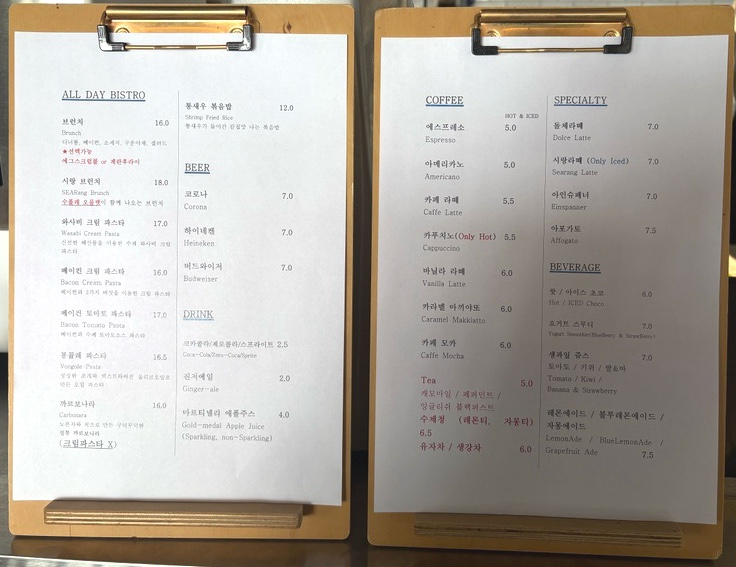 ALL DAY BISTRO
브런치 16.0
Brunch
디너롤, 베이컨, 소세지, 구운야채, 샐러드
★선택가능
에그스크럼블 or 계란후라이
시랑 브런치 18.0
SEARang Brunch
수플레 오믈렛이 함께 나오는 브런치
와사비 크림 파스타 17.0
Wasabi Cream Pasta
신선한 해산물을 이용한 수제 와사비 크림
파스타
베이컨 크림 파스타 16.0
Bacon Cream Pasta
베이컨과 2가지 버섯을 이용한 크림 파스타
베이컨 토마토 파스타 17.0
Bacon Tomato Pasta
베이컨과 수제 토마토소스 파스타
봉골레 파스타 16.5
Vongole Pasta
싱싱한 조개와 엑스트라버진 올리브오일로
만든 오일 파스타
까르보나라 16.0
Carbonara
노른자와 치즈로 만든 꾸덕꾸덕한
정통 까르보나라
(크림파스타 X)
통새우 볶음밥 12.0
Shrimp Fried Rice
통새우가 들어간 감칠맛 나는 볶음밥
BEER
코로나 7.0
Corona
하이네켄 7.0
Heineken
버드와이저 7.0
Budweiser
DRINK
코카콜라/제로콜라/스프라이트 2.5
Coca-Cola/Zero-Coca/Sprite
진저에일 2.0
Ginger-ale
마르티넬리 애플주스 4.0
Gold-medal Apple Juice
(Sparkling, non-Sparkling)
COFFEE
HOT & ICED
에스프레소 5.0
Espresso
아메리카노 5.0
Americano
카페 라떼 5.5
Caffe Latte
카푸치노(Only Hot) 5.5
Cappuccino
바닐라 라떼 6.0
Vanilla Latte
카라멜 마끼아또 6.0
Caramel Makkiatto
카페 모카 6.0
Caffe Mocha
Tea 5.0
캐모마일 / 페퍼민트 /
잉글리쉬 블랙퍼스트
수제청 (레몬티, 자몽티)
6.5
유자차 / 생강차 6.0
SPECIALTY
돌체라떼 7.0
Dolce Latte
시랑라떼 (Only Iced) 7.0
Searang Latte
아인슈페너 7.0
Einspanner
아포가토 7.5
Affogato
BEVERAGE
핫 / 아이스 초코 6.0
Hot / ICED Choco
요거트 스무디 7.0
Yogurt Smoothie(BlueBerry & StrawBerry)
생과일 쥬스 7.0
토마토 / 키위 / 딸&바
Tomato / Kiwi /
Banana & Strawberry
레몬에이드 / 블루레몬에이드 /
자몽에이드
LemonAde / BlueLemonAde /
Grapefruit Ade 7.5